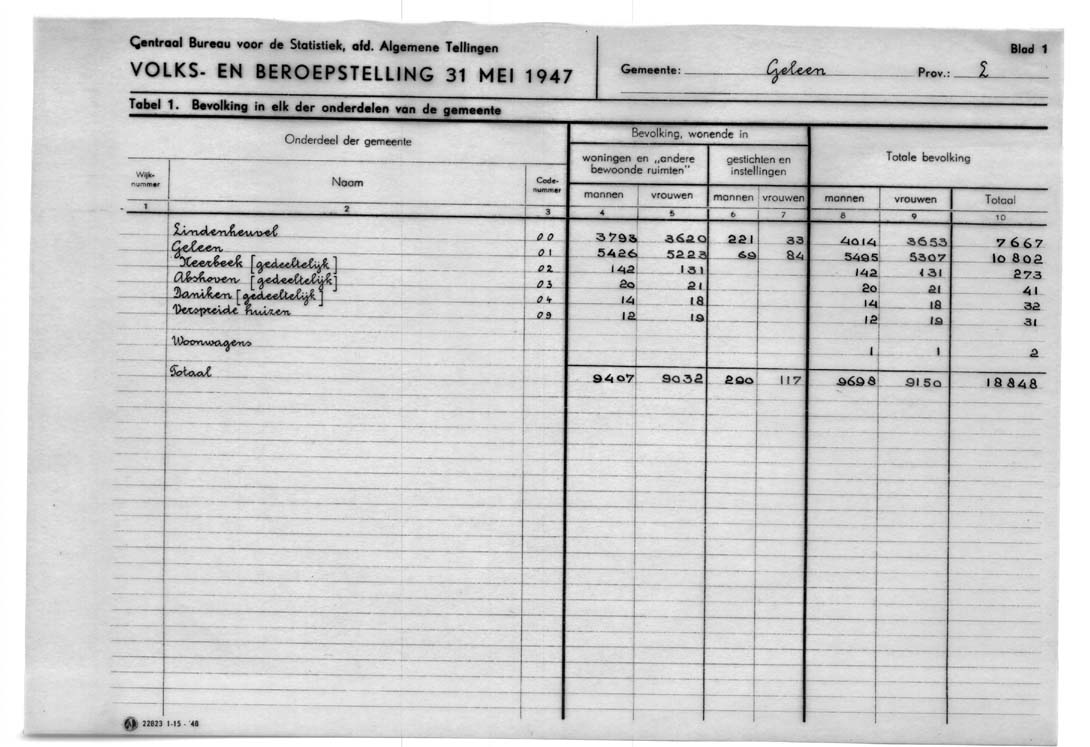 Centraal Bureau voor de Statistiek, afd. Algemene Tellingen
VOLKS- EN BEROEPSTELLING 31 MEI 1947
Gemeente: Geleen Prov.: L
Blad 1
Tabel 1. Bevolking in elk der onderdelen van de gemeente
Onderdeel der gemeente Bevolking, wonende in Totale bevolking
woningen en „andere bewoonde ruimten" gestichten en instellingen
Wijk-nummer Naam Code-nummer mannen vrouwen mannen vrouwen mannen vrouwen Totaal
1 2 3 4 5 6 7 8 9 10
Lindenheuvel 00 3793 3620 221 33 4014 3653 7667
Geleen 01 5426 5223 69 84 5495 5307 10802
Neerbeek [gedeeltelijk] 02 142 131 142 131 273
Abshoven [gedeeltelijk] 03 20 21 20 21 41
Daniken [gedeeltelijk] 04 14 18 14 18 32
Verspreide huizen 09 12 19 12 19 31
Woonwagens 1 1 2
Totaal 9407 9032 290 117 9698 9150 18848
22823 1-15 - '48